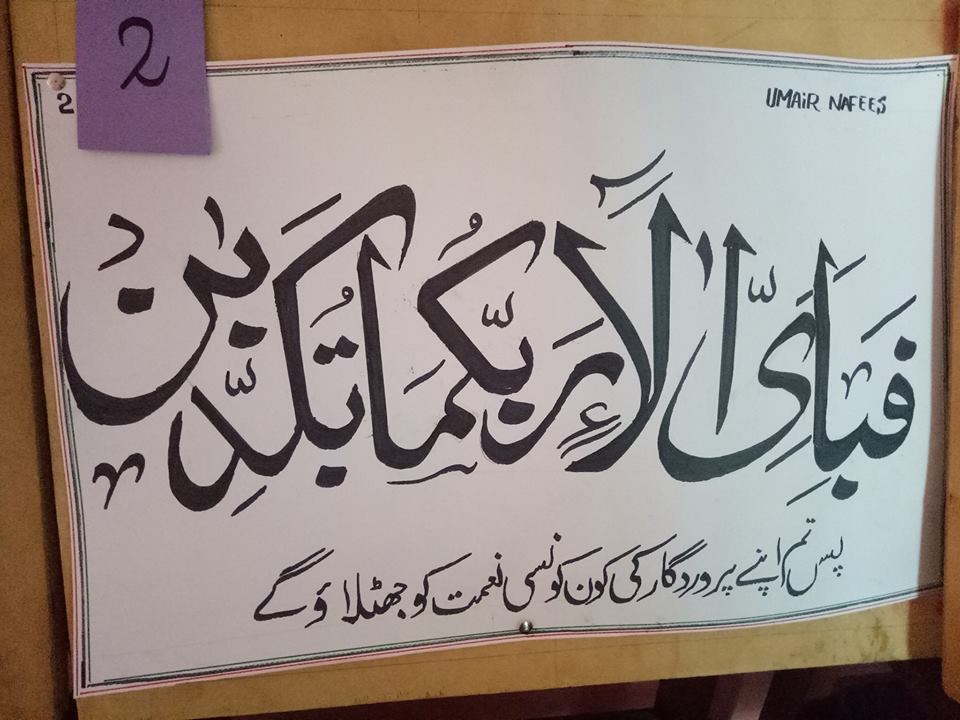 2
2
UMAIR NAFEES
فَبِاَيِّ اٰلَآءِ رَبِّكُمَا تُكَذِّبٰنِ
پس تم اپنے پروردگار کی کون کونسی نعمت کو جھٹلاؤ گے